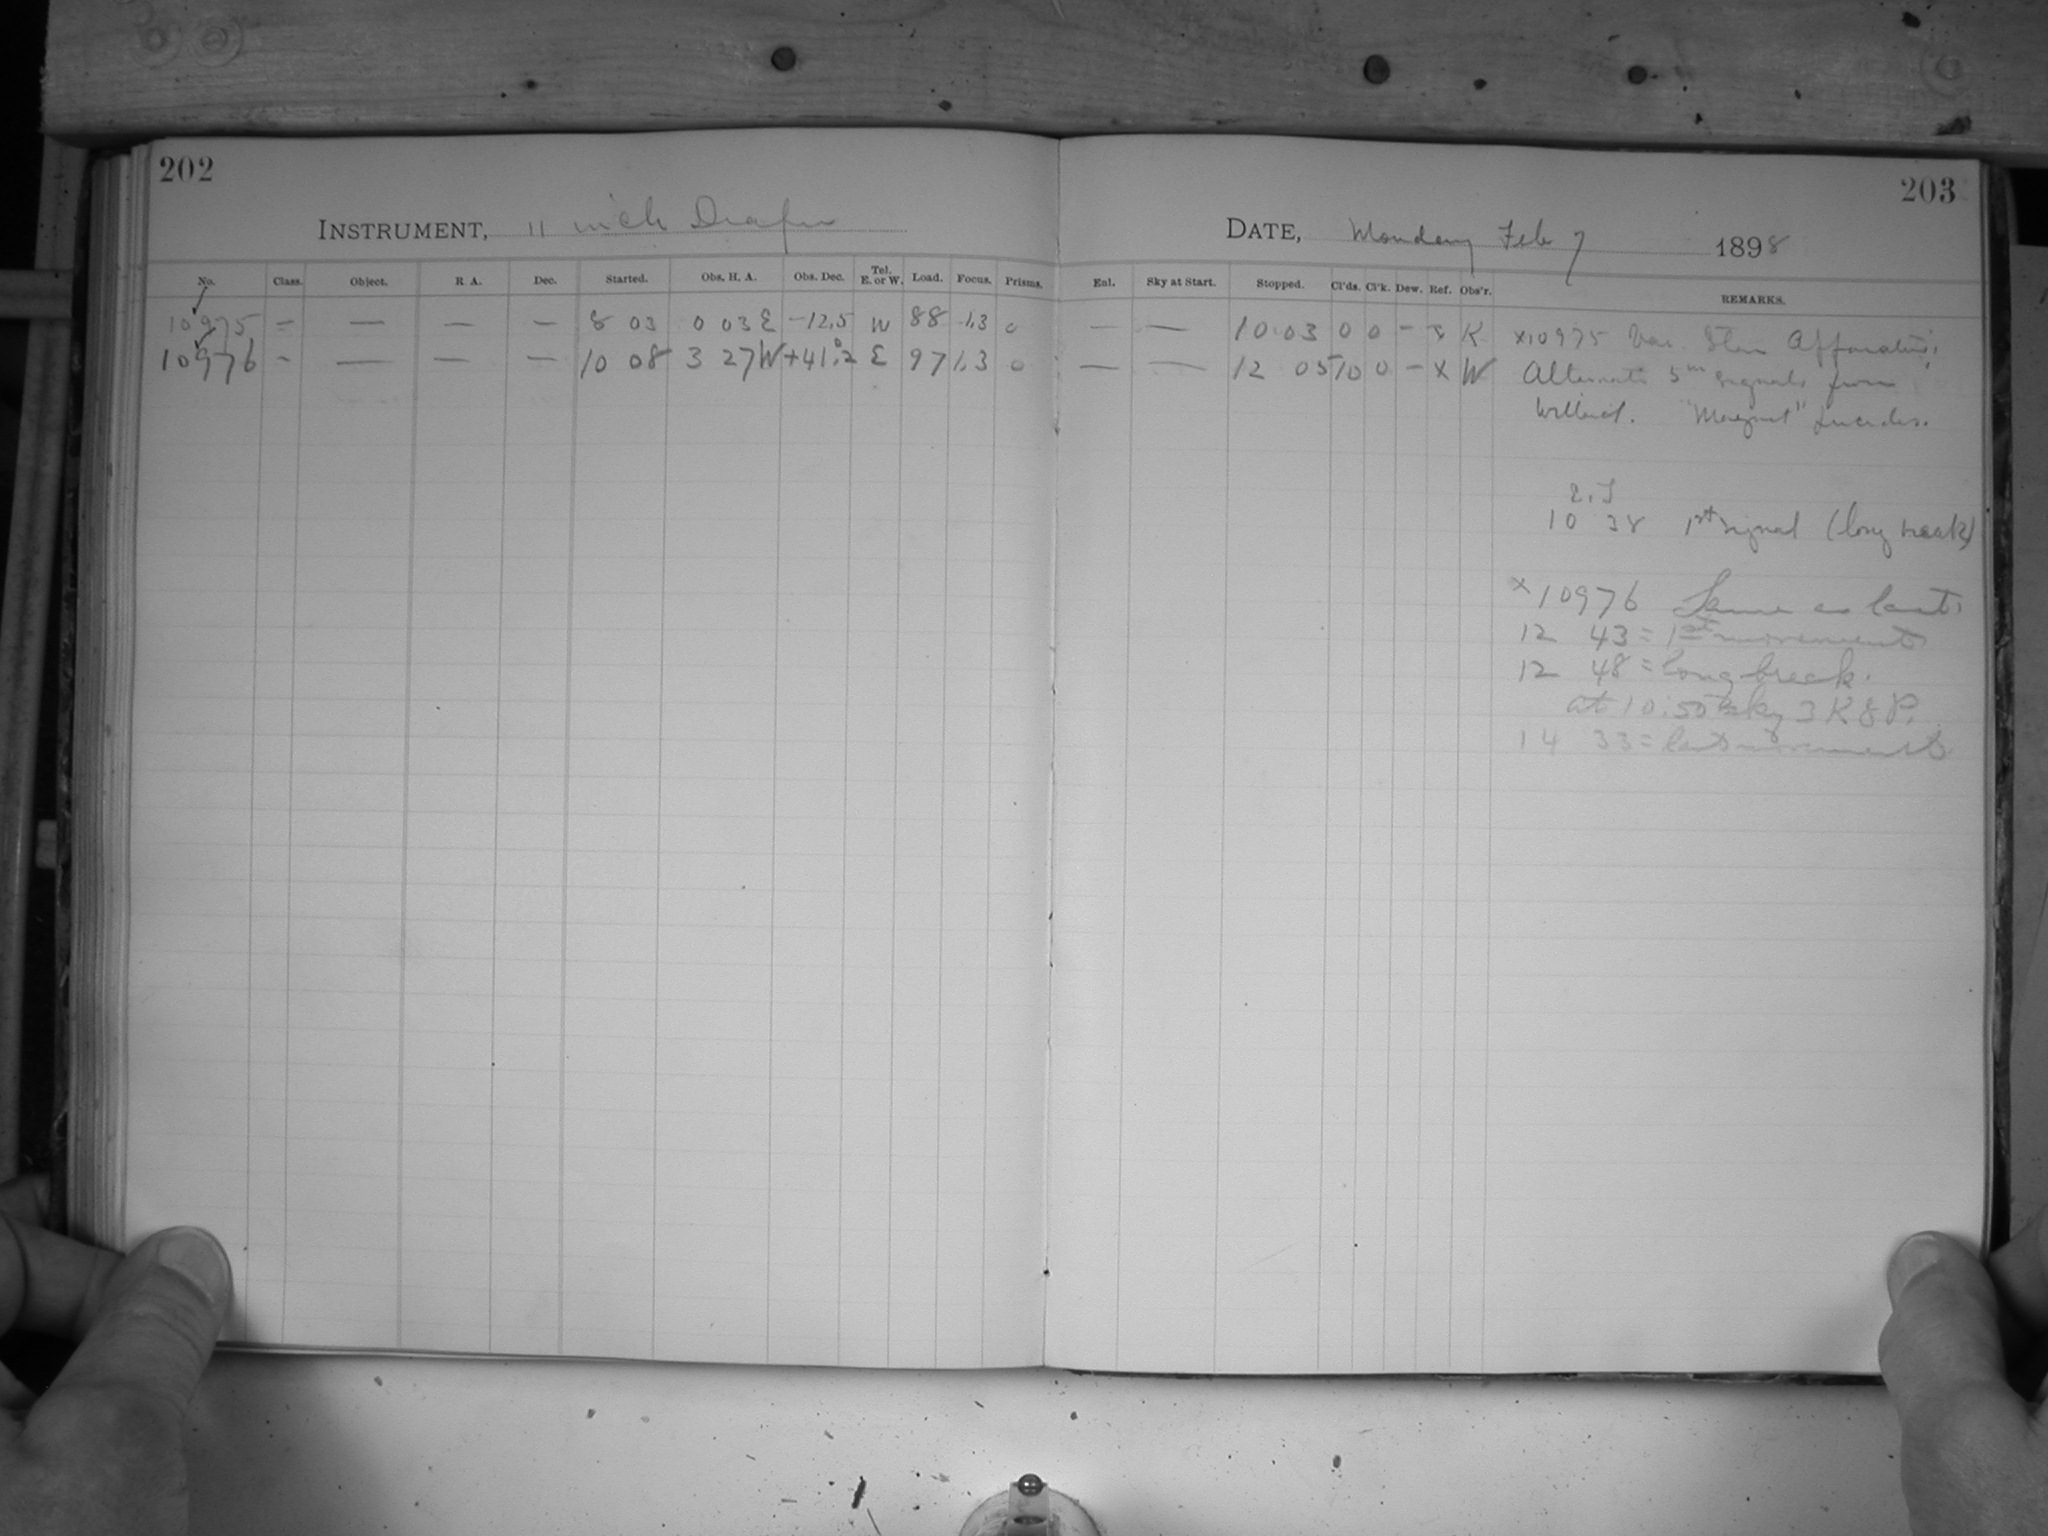 202
INSTRUMENT, 11 inch Draper
No. Class. Object. R A. Dec. Started. Obs. H. A. Obs. Dec. Tel. E. or W. Load. Focus. Prisms.
10975 – — — — 8 03 0 03 E -12.5 W 88 1.3 0
10976 - — — — 10 08 3 27 W +41.2 E 97 1.3 0
203
DATE, Monday Feb 7 1898
Enl. Sky at Start. Stopped. Cl'ds. Cl'k. Dew. Ref. Obs'r. REMARKS.
— — 10 03 0 0 – x K x10975 Var. Star Apparatus.
— — 12 05 10 0 – x W Alternate 5m signals from
Willard. "Margaret"
10 38 1st signal (long break)
x10976 Same as last.
12 43 = 1st movement
12 48 = long break.
at 10:50 sky 3 K & P.
14 33 = last movement